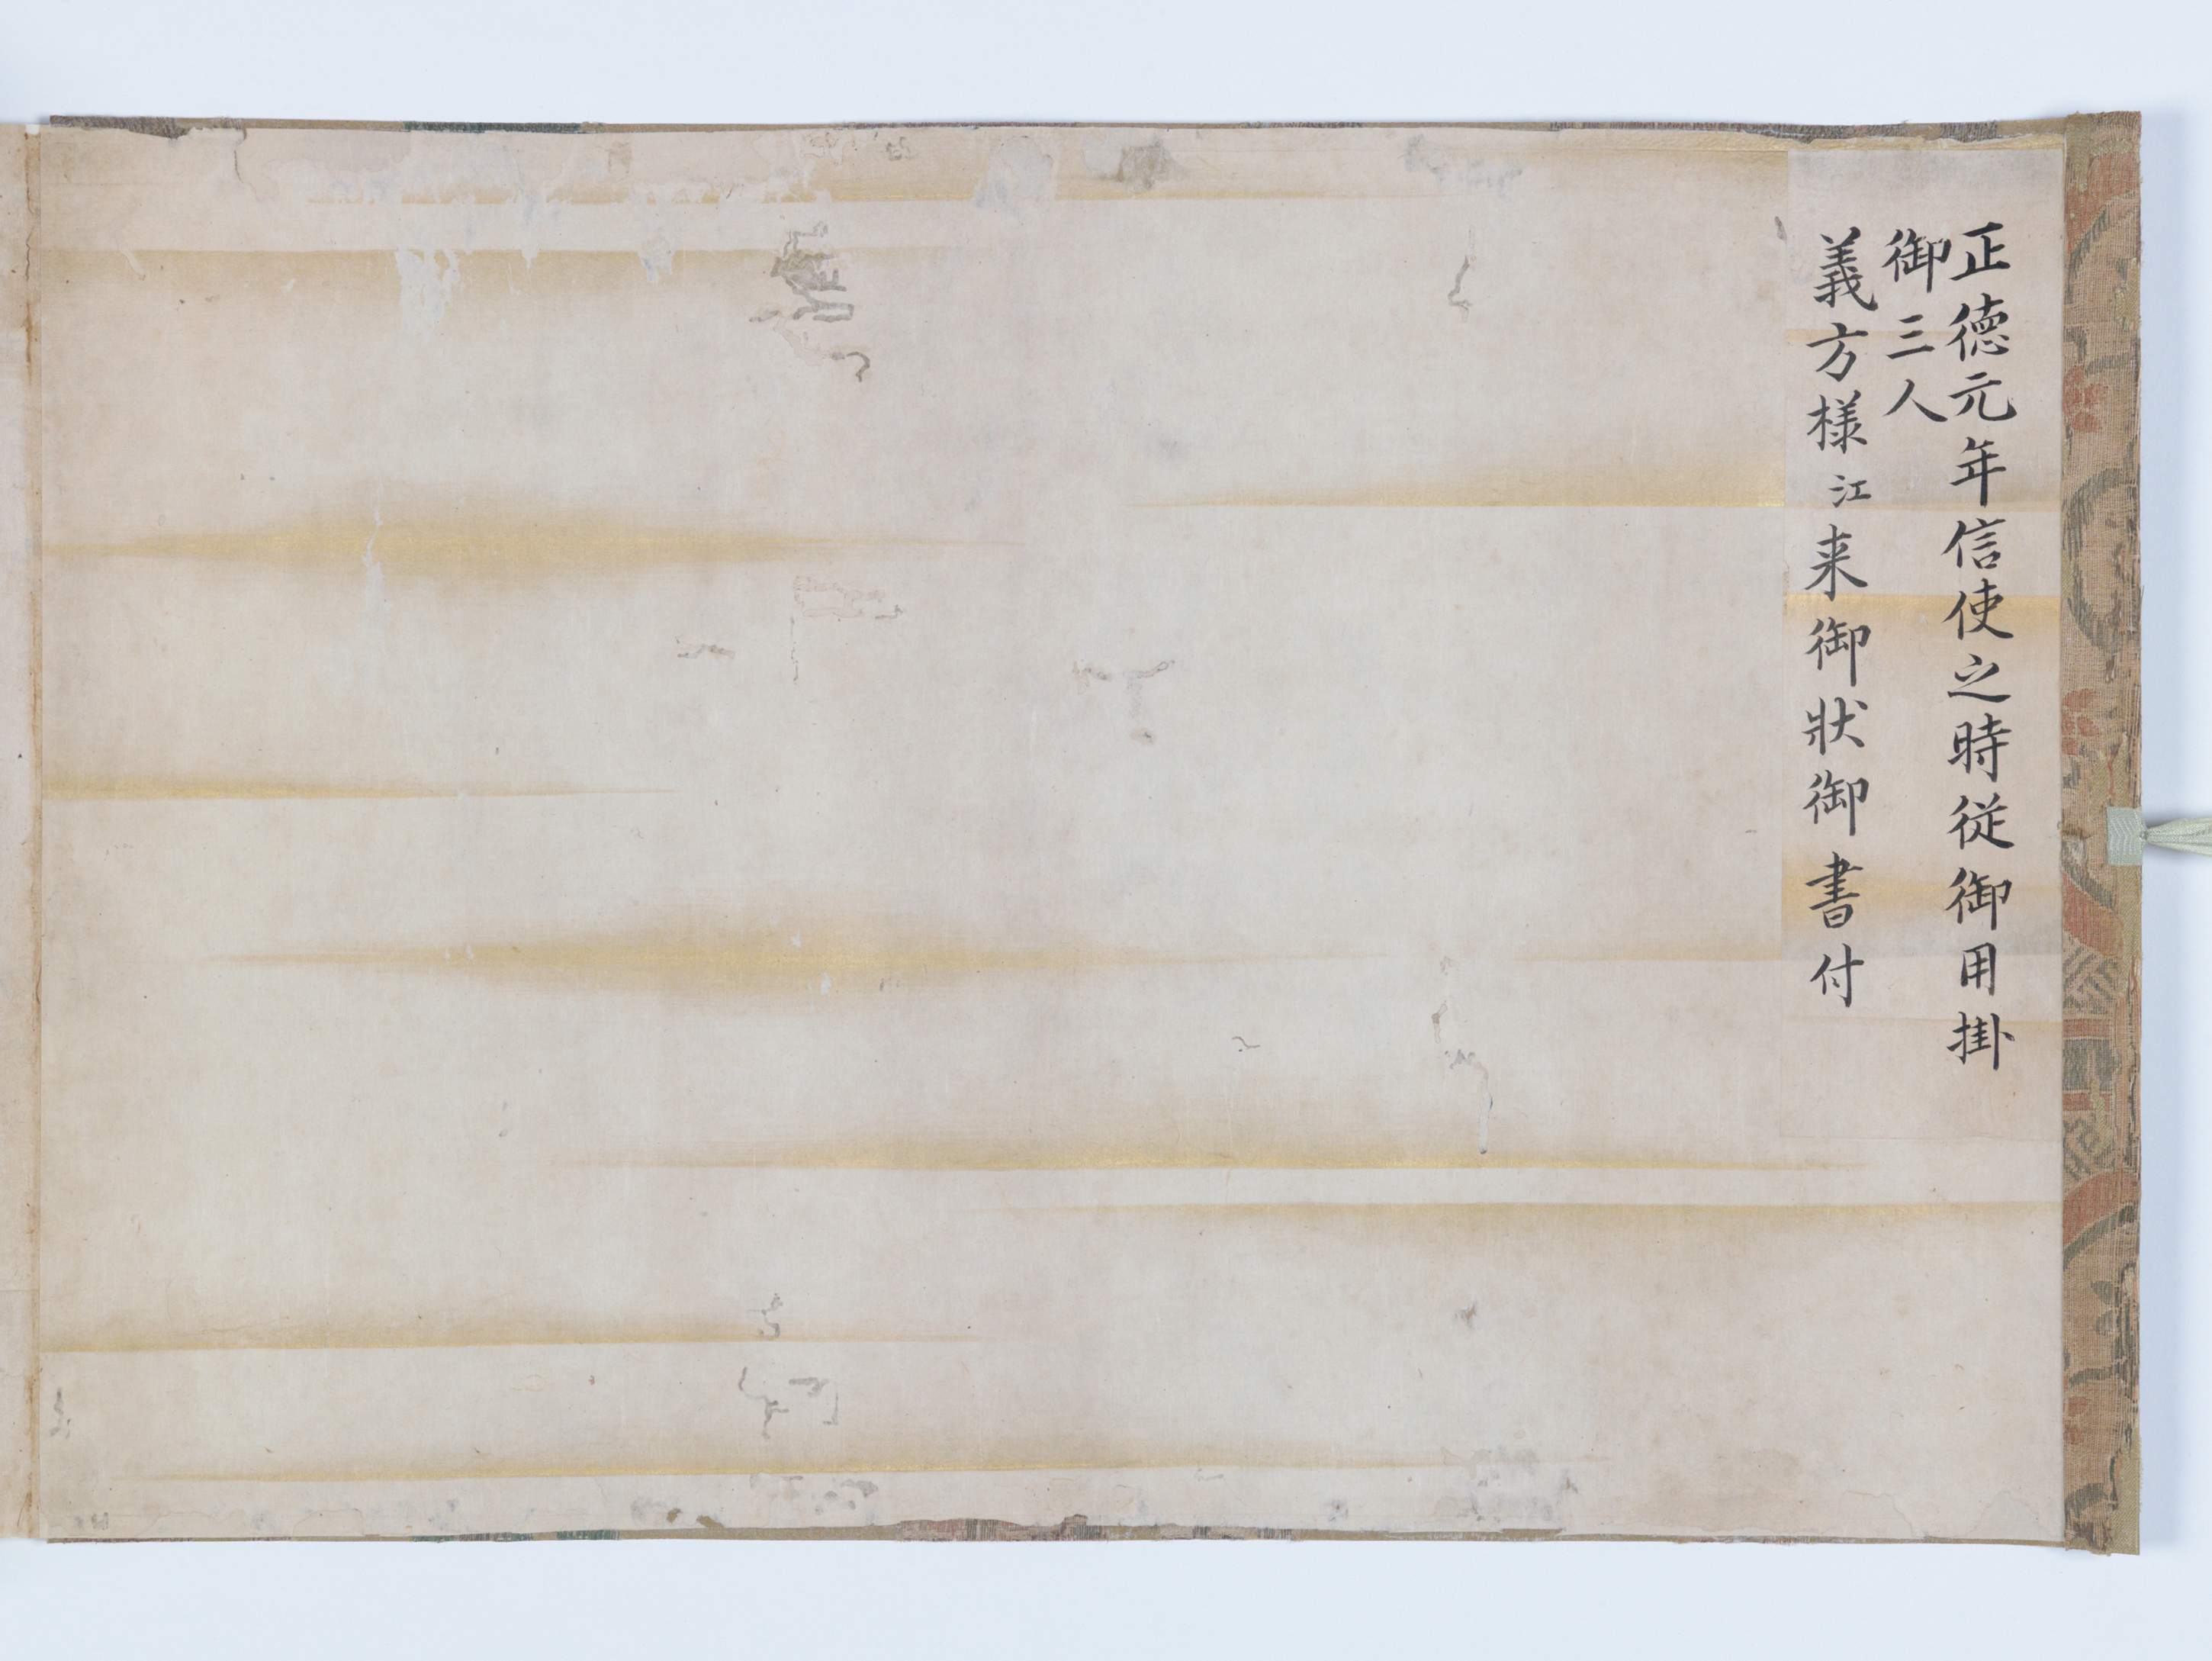 正徳元年信使之時従御用掛
御三人
義方様江来御状御書付